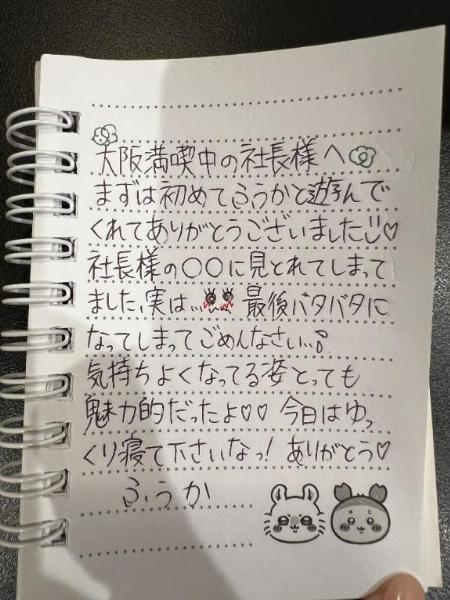 大阪満喫中の社長様へ
まずは初めてふうかと遊んで
くれてありがとうございました♡
社長様の〇〇に見とれてしまって
ました、実は... 最後バタバタに
なってしまってごめんなさい...
気持ちよくなってる姿とっても
魅力的だったよ♡♡ 今日はゆっ
くり寝て下さいなっ! ありがとう♡
ふうか